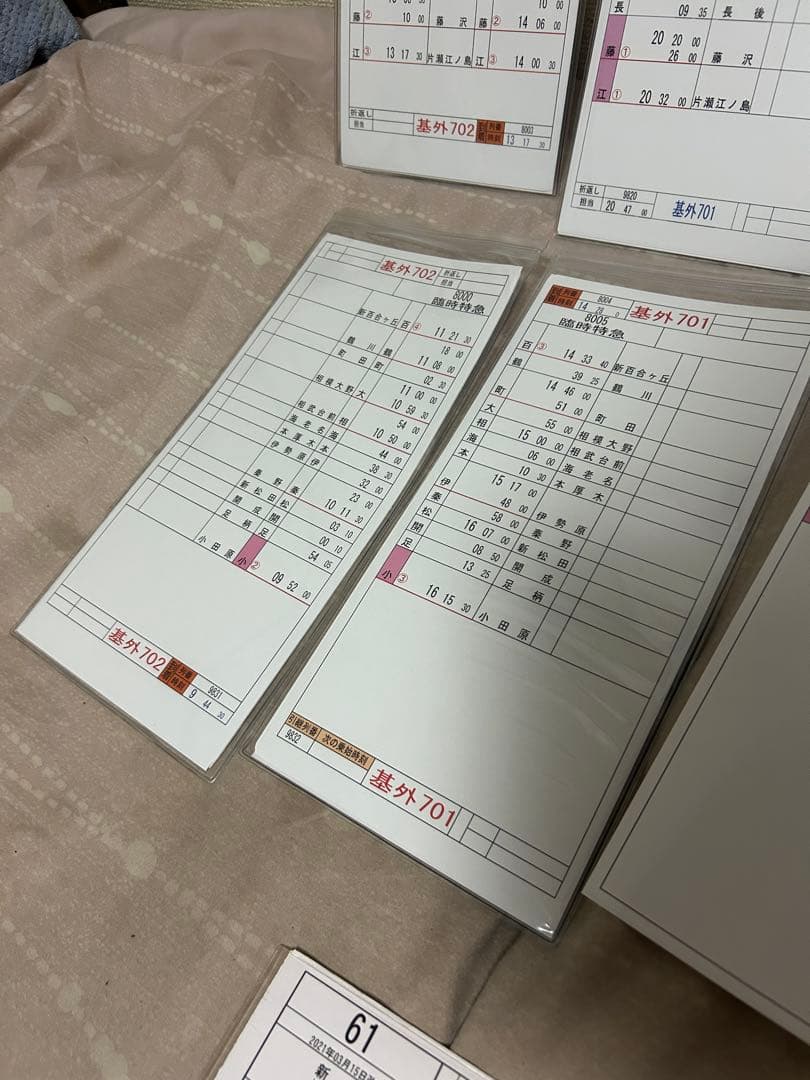 藤② 10 00 藤沢 藤② 14 06 00
江③ 13 17 30 片瀬江ノ島 江③ 14 00 30
折返し
担当
基外702 列番 8003
時刻 13 17 30
長 09 35 長後
20 20 00
藤① 26 00 藤沢
江① 20 32 00 片瀬江ノ島
折返し 9820
担当 20 47 00
基外701
基外702 折返し
担当
8000
臨時特急
新百合ヶ丘 百④ 11 21 30
18 00
鶴川 鶴 11 08 00
町田 町 02 30
11 00 00
相模大野 大 10 59 30
54 00
相武台前 相 10 50 00
海老名 海 44 00
本厚木 本 38 30
伊勢原 伊 32 00
秦野 秦 23 00
新松田 松 10 11 30
開成 開 03 10
足柄 足 00 10
54 05
小田原 小② 09 52 00
基外702 列番 9831
時刻 9 44 30
列番 8004
時刻 14 26 0
基外701
8005
臨時特急
百③ 14 33 40 新百合ヶ丘
鶴 39 25 鶴川
14 46 00
町 51 00 町田
大 55 00 相模大野
相 15 00 00 相武台前
海 06 00 海老名
本 10 30 本厚木
15 17 00
伊 48 00 伊勢原
秦 58 00 秦野
松 16 07 00 新松田
開 08 50 開成
足 13 25 足柄
小③ 16 15 30 小田原
引継列番 次の乗始時刻
9832
基外701
61
2021年03月15日
新